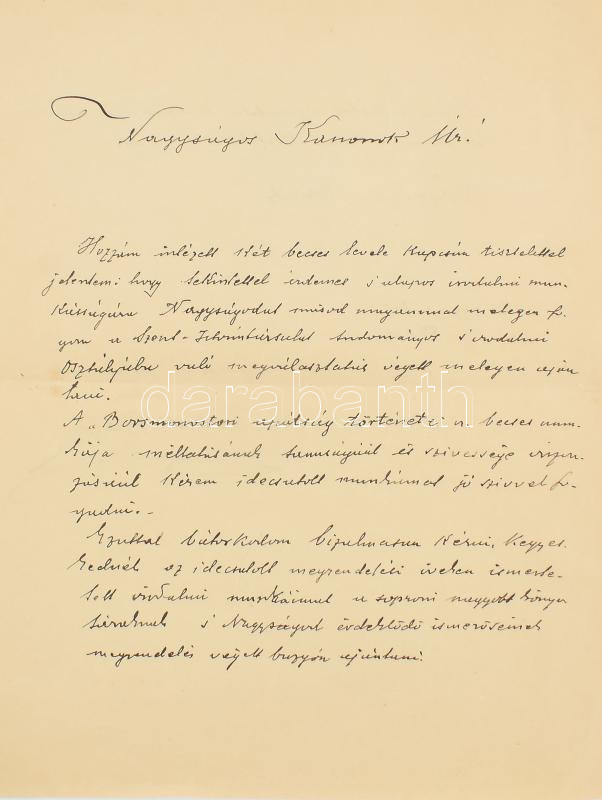 Nagyságos Kanonok Úr!
Hozzám intézett két becses levele kapcsán tisztelettel
jelentem: hogy tekintettel érdemes s alapos irodalmi mun-
kásságára Nagyságodat másod magammal melegen fo-
gom a Szent-István társulat tudományos s irodalmi
osztályába való megválasztatás végett melegen aján
lani.
A "Borsmonostori apátság történeté" a becses mun-
kája méltatásának tanuságáúl és szivessége viszon-
zásáúl kérem idecsatolt munkámat jó szivvel fo-
gadni.-
Ezuttal bátorkodom bizalmasan kérni, kegyes-
kednék az idecsatolt megrendelési iveken ismerte-
tett irodalmi munkáimat a soproni nagyobb könyv
táraknak s Nagyságod érdeklődő ismerőseinek
megrendelés végett buzgón ajánlani.
darabanth